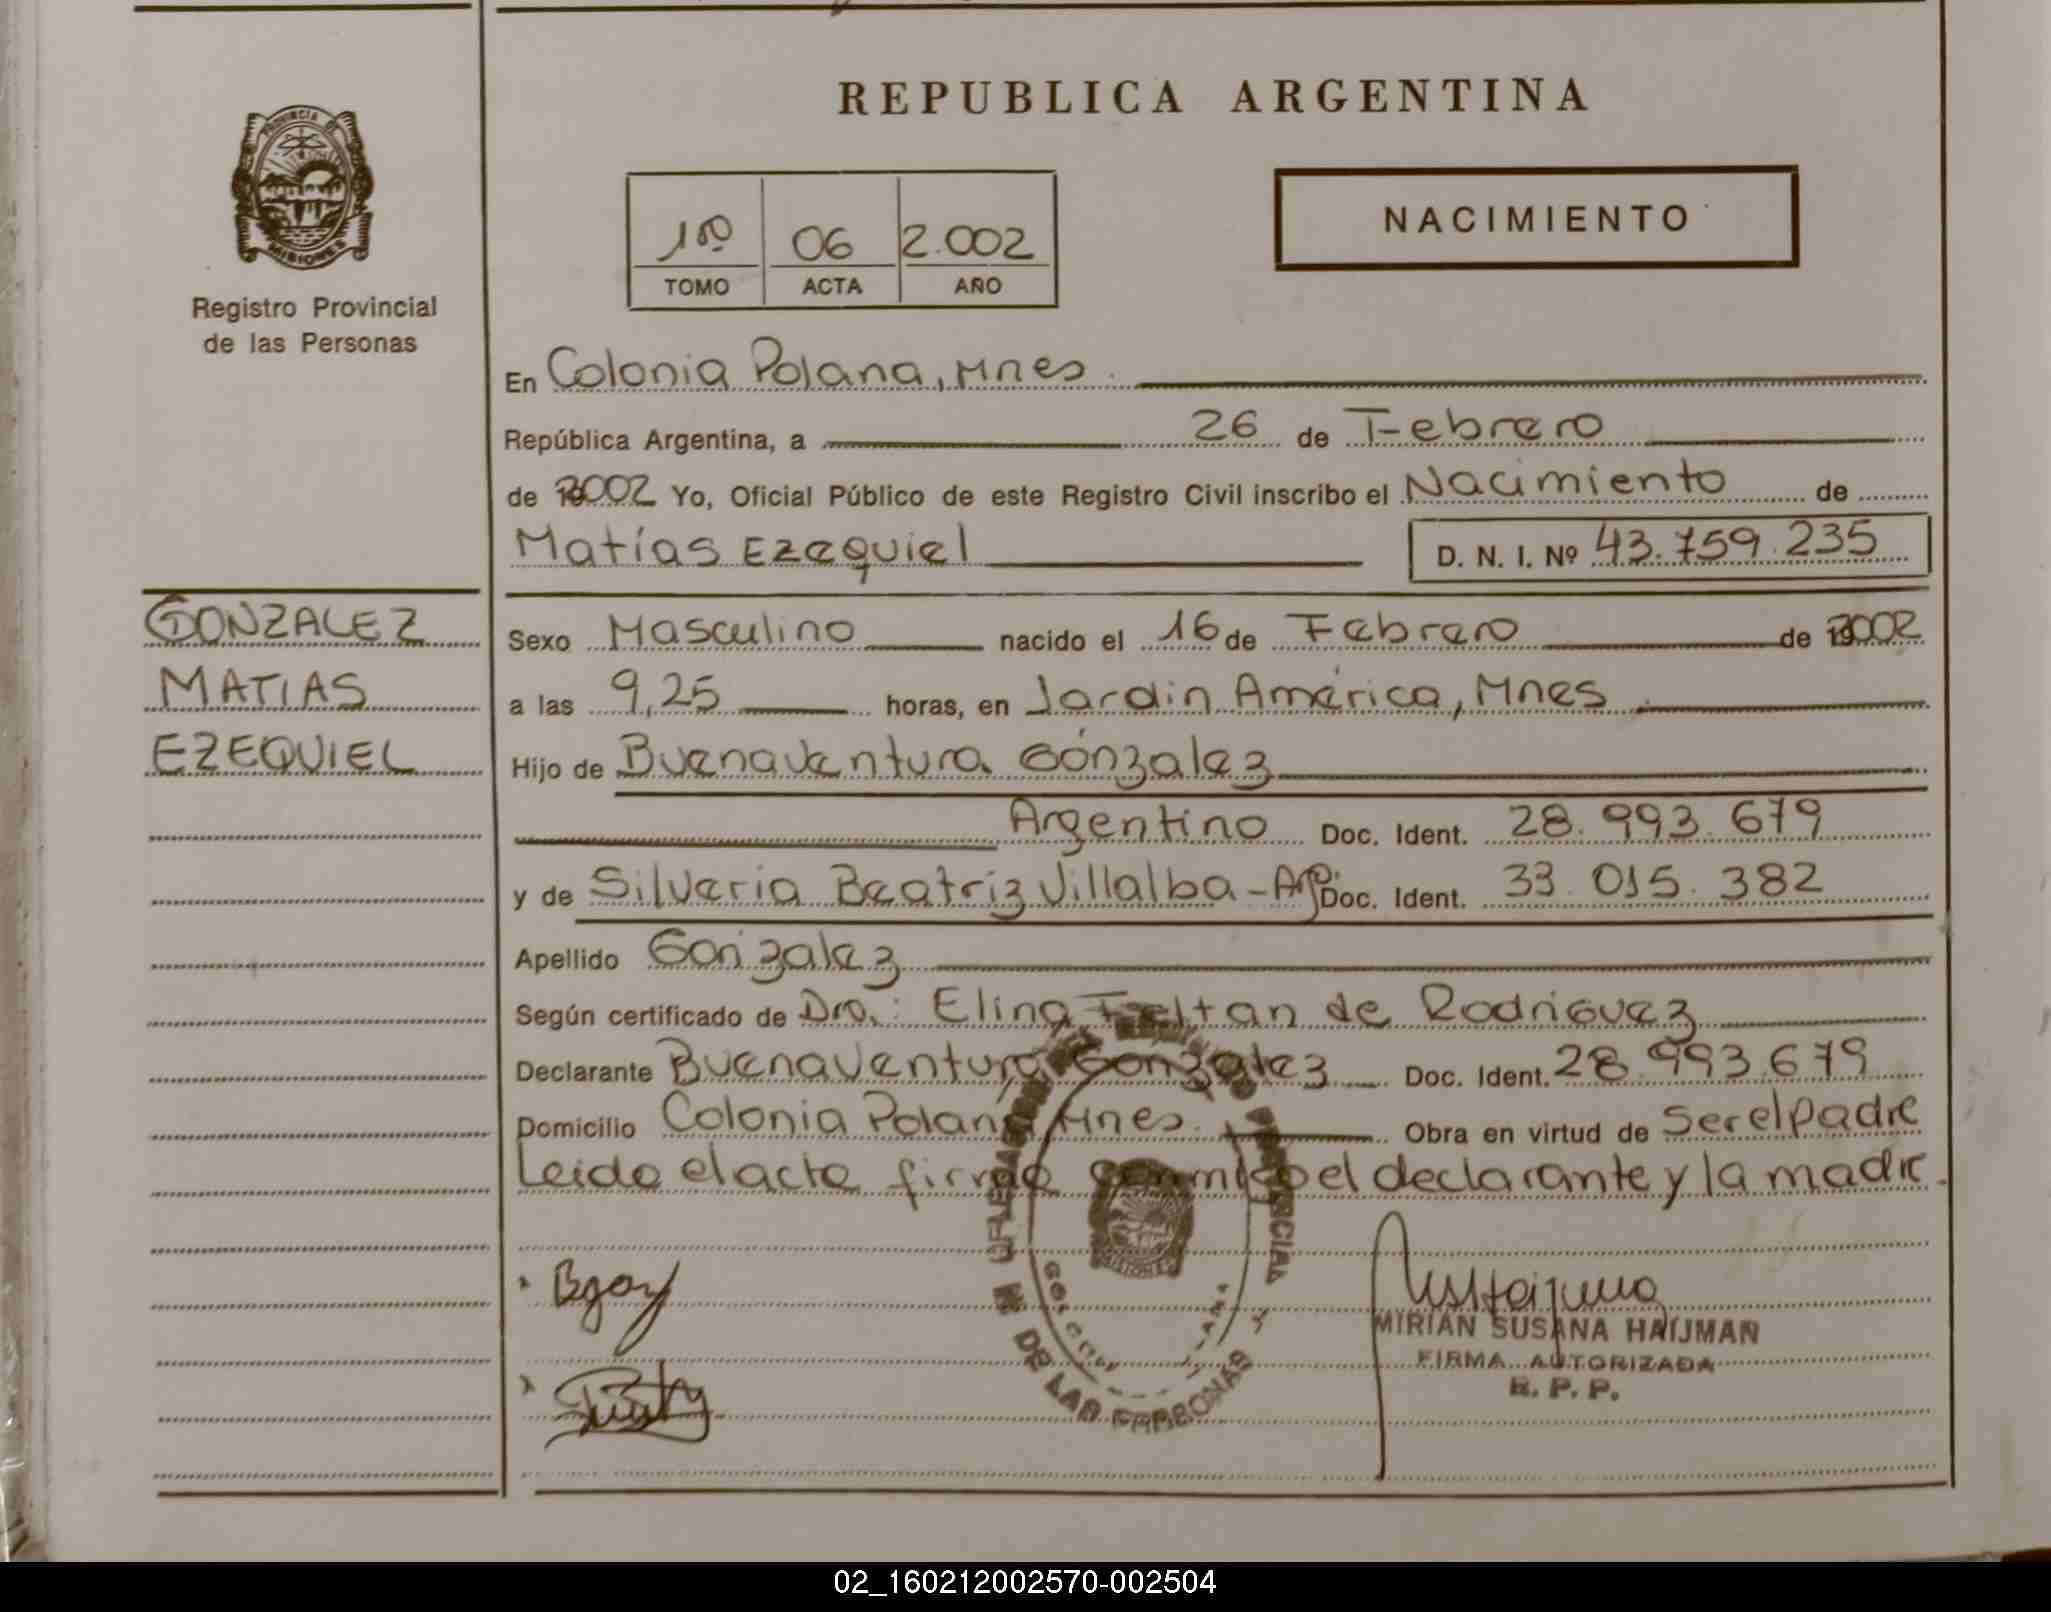 PROVINCIA DE
MISIONES
Registro Provincial
de las Personas
REPUBLICA ARGENTINA
1º 06 2.002
TOMO ACTA AÑO
NACIMIENTO
En Colonia Polana, Mnes.
República Argentina, a 26 de Febrero
de 2002 Yo, Oficial Público de este Registro Civil inscribo el Nacimiento de
Matías Ezequiel D. N. I. Nº 43.759.235
GONZALEZ
MATIAS
EZEQUIEL
Sexo Masculino nacido el 16 de Febrero de 2002
a las 9,25 horas, en Jardin América, Mnes
Hijo de Buenaventura Gónzalez
Argentino Doc. Ident. 28.993.679
y de Silveria Beatriz Villalba - Arg. Doc. Ident. 33.015.382
Apellido Gonzalez
Según certificado de Dra.: Elina Feltan de Rodriguez
Declarante Buenaventura Gonzalez Doc. Ident. 28.993.679
Domicilio Colonia Polana Mnes. Obra en virtud de Ser el padre
Leido el acta firman conmigo el declarante y la madre.
DE LAS PERSONAS
MISIONES
MIRIAN SUSANA HAIJMAN
FIRMA AUTORIZADA
R. P. P.
02_160212002570-002504